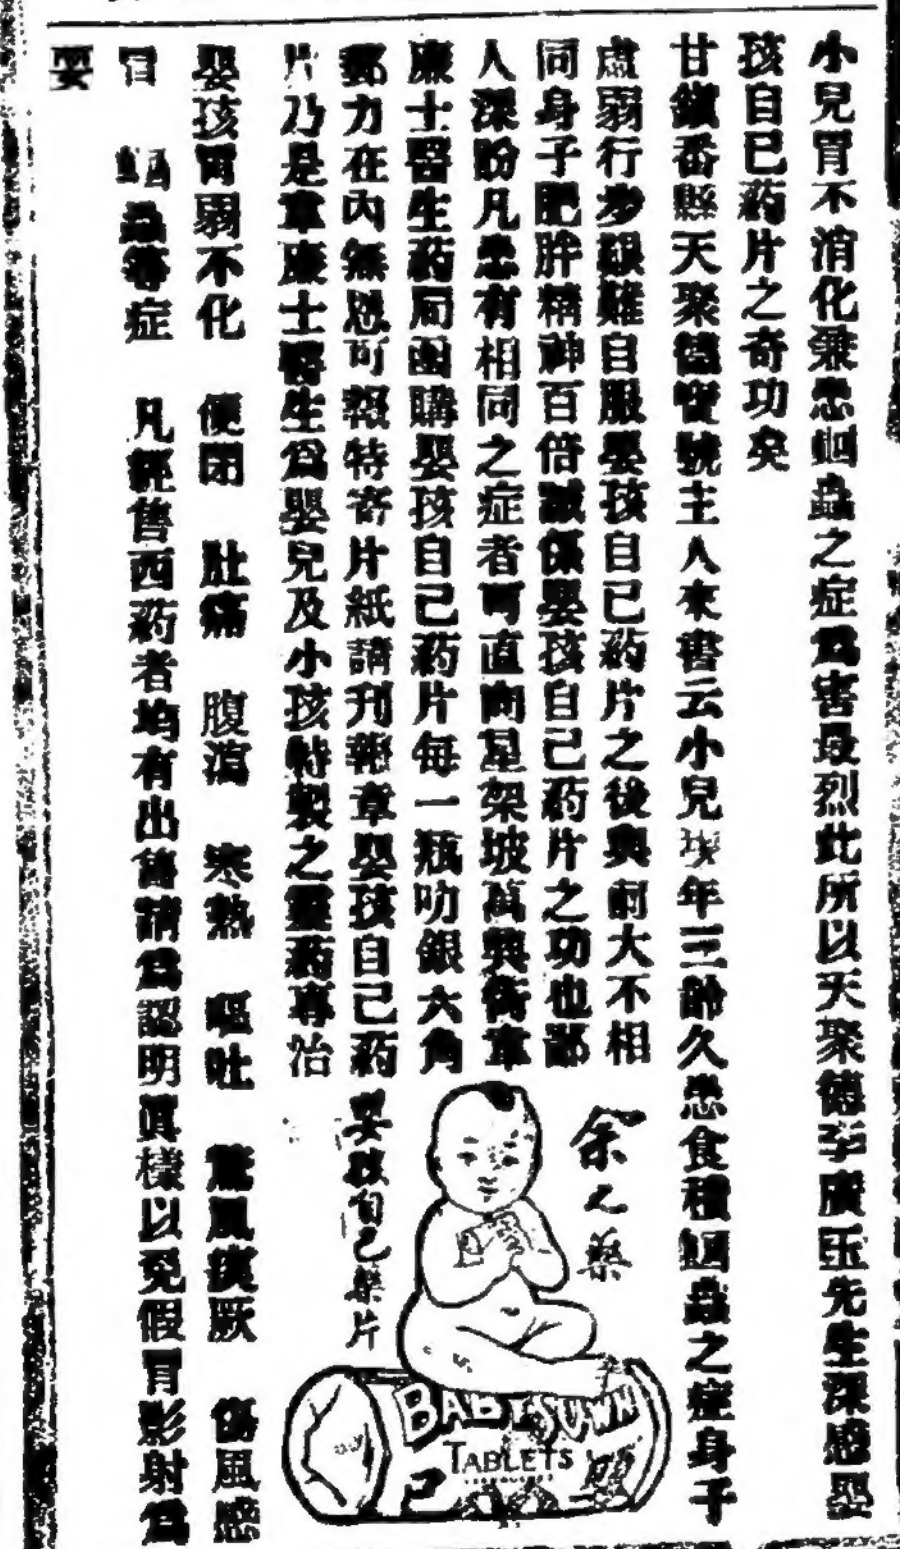 小兒胃不消化兼患蛔蟲之症爲害最烈此所以天聚德李廣玉先生深感嬰
孩自已葯片之奇功矣
甘鎮番縣天聚德寶號主人來書云小兒現年三齡久患食積蛔蟲之症身子
虛弱行步艱難自服嬰孩自已葯片之後與前大不相
同身子肥胖精神百倍誠係嬰孩自己葯片之功也鄙
人深盼凡患有相同之症者可直向星架坡萬興街韋
廉士醫生葯局函購嬰孩自己葯片每一瓶叻銀六角
郵力在內無恩可報特寄片紙請刊報章嬰孩自己葯
片乃是韋廉士醫生爲嬰兒及小孩特製之靈葯專治
嬰孩胃弱不化 便閉 肚痛 腹瀉 寒熱 嘔吐 驚風痰厥 傷風感
冒 蛔蟲等症 凡經售西葯者均有出售請爲認明眞樣以免假冒影射爲
要
余之藥
嬰孩自己藥片
BABY'S OWN
TABLETS
己